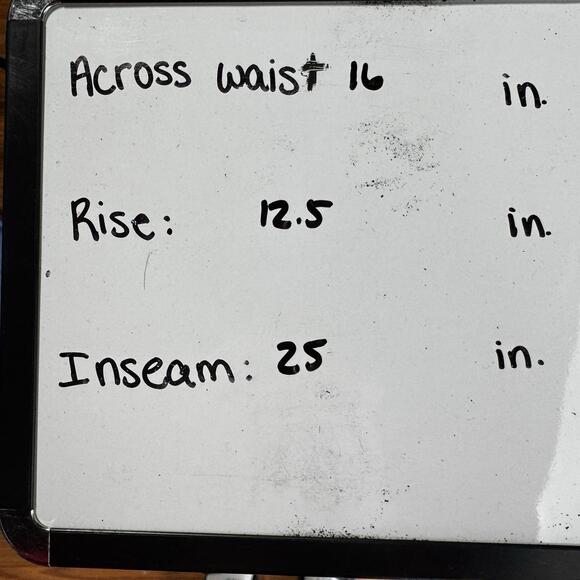 Across waist 16 in.
Rise: 12.5 in.
Inseam: 25 in.